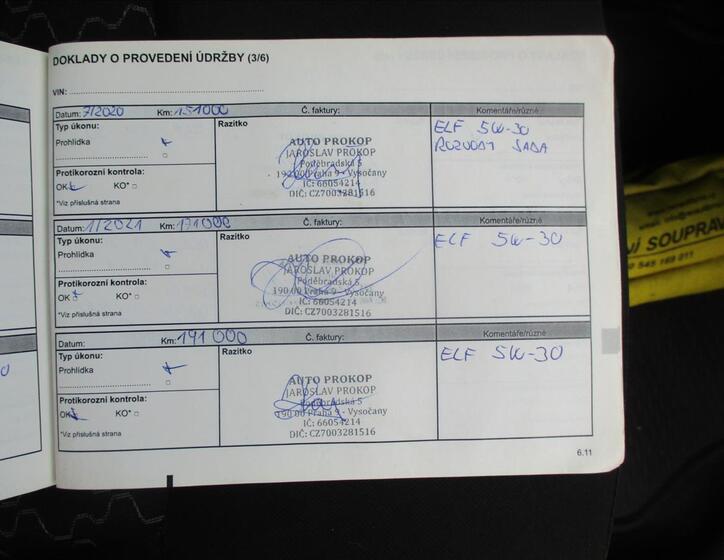 DOKLADY O PROVEDENÍ ÚDRŽBY (3/6)
VIN:
Datum: 7/2020 Km: 151000 Č. faktury: Komentáře/různé
Typ úkonu: Razítko ELF 5W-30
Prohlídka ROZVODY SADA
AUTO PROKOP
JAROSLAV PROKOP
Poděbradská 5
190 00 Praha 9 - Vysočany
IČ: 66054214
DIČ: CZ7003281516
Protikorozní kontrola:
OK KO*
*Viz příslušná strana
Datum: 1/2021 Km: 171000 Č. faktury: Komentáře/různé
Typ úkonu: Razítko ELF 5W-30
Prohlídka
AUTO PROKOP
JAROSLAV PROKOP
Poděbradská 5
190 00 Praha 9 - Vysočany
IČ: 66054214
DIČ: CZ7003281516
Protikorozní kontrola:
OK KO*
*Viz příslušná strana
Datum: Km: 191 000 Č. faktury: Komentáře/různé
Typ úkonu: Razítko ELF 5W-30
Prohlídka
AUTO PROKOP
JAROSLAV PROKOP
Poděbradská 5
190 00 Praha 9 - Vysočany
IČ: 66054214
DIČ: CZ7003281516
Protikorozní kontrola:
OK KO*
*Viz příslušná strana
6.11
SOUPRAV
545 169 011